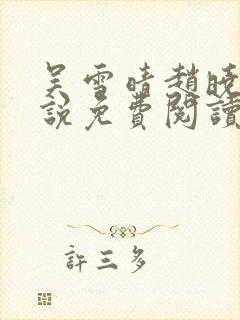 吴雪晴趙曉
說免費閱讀
許三多